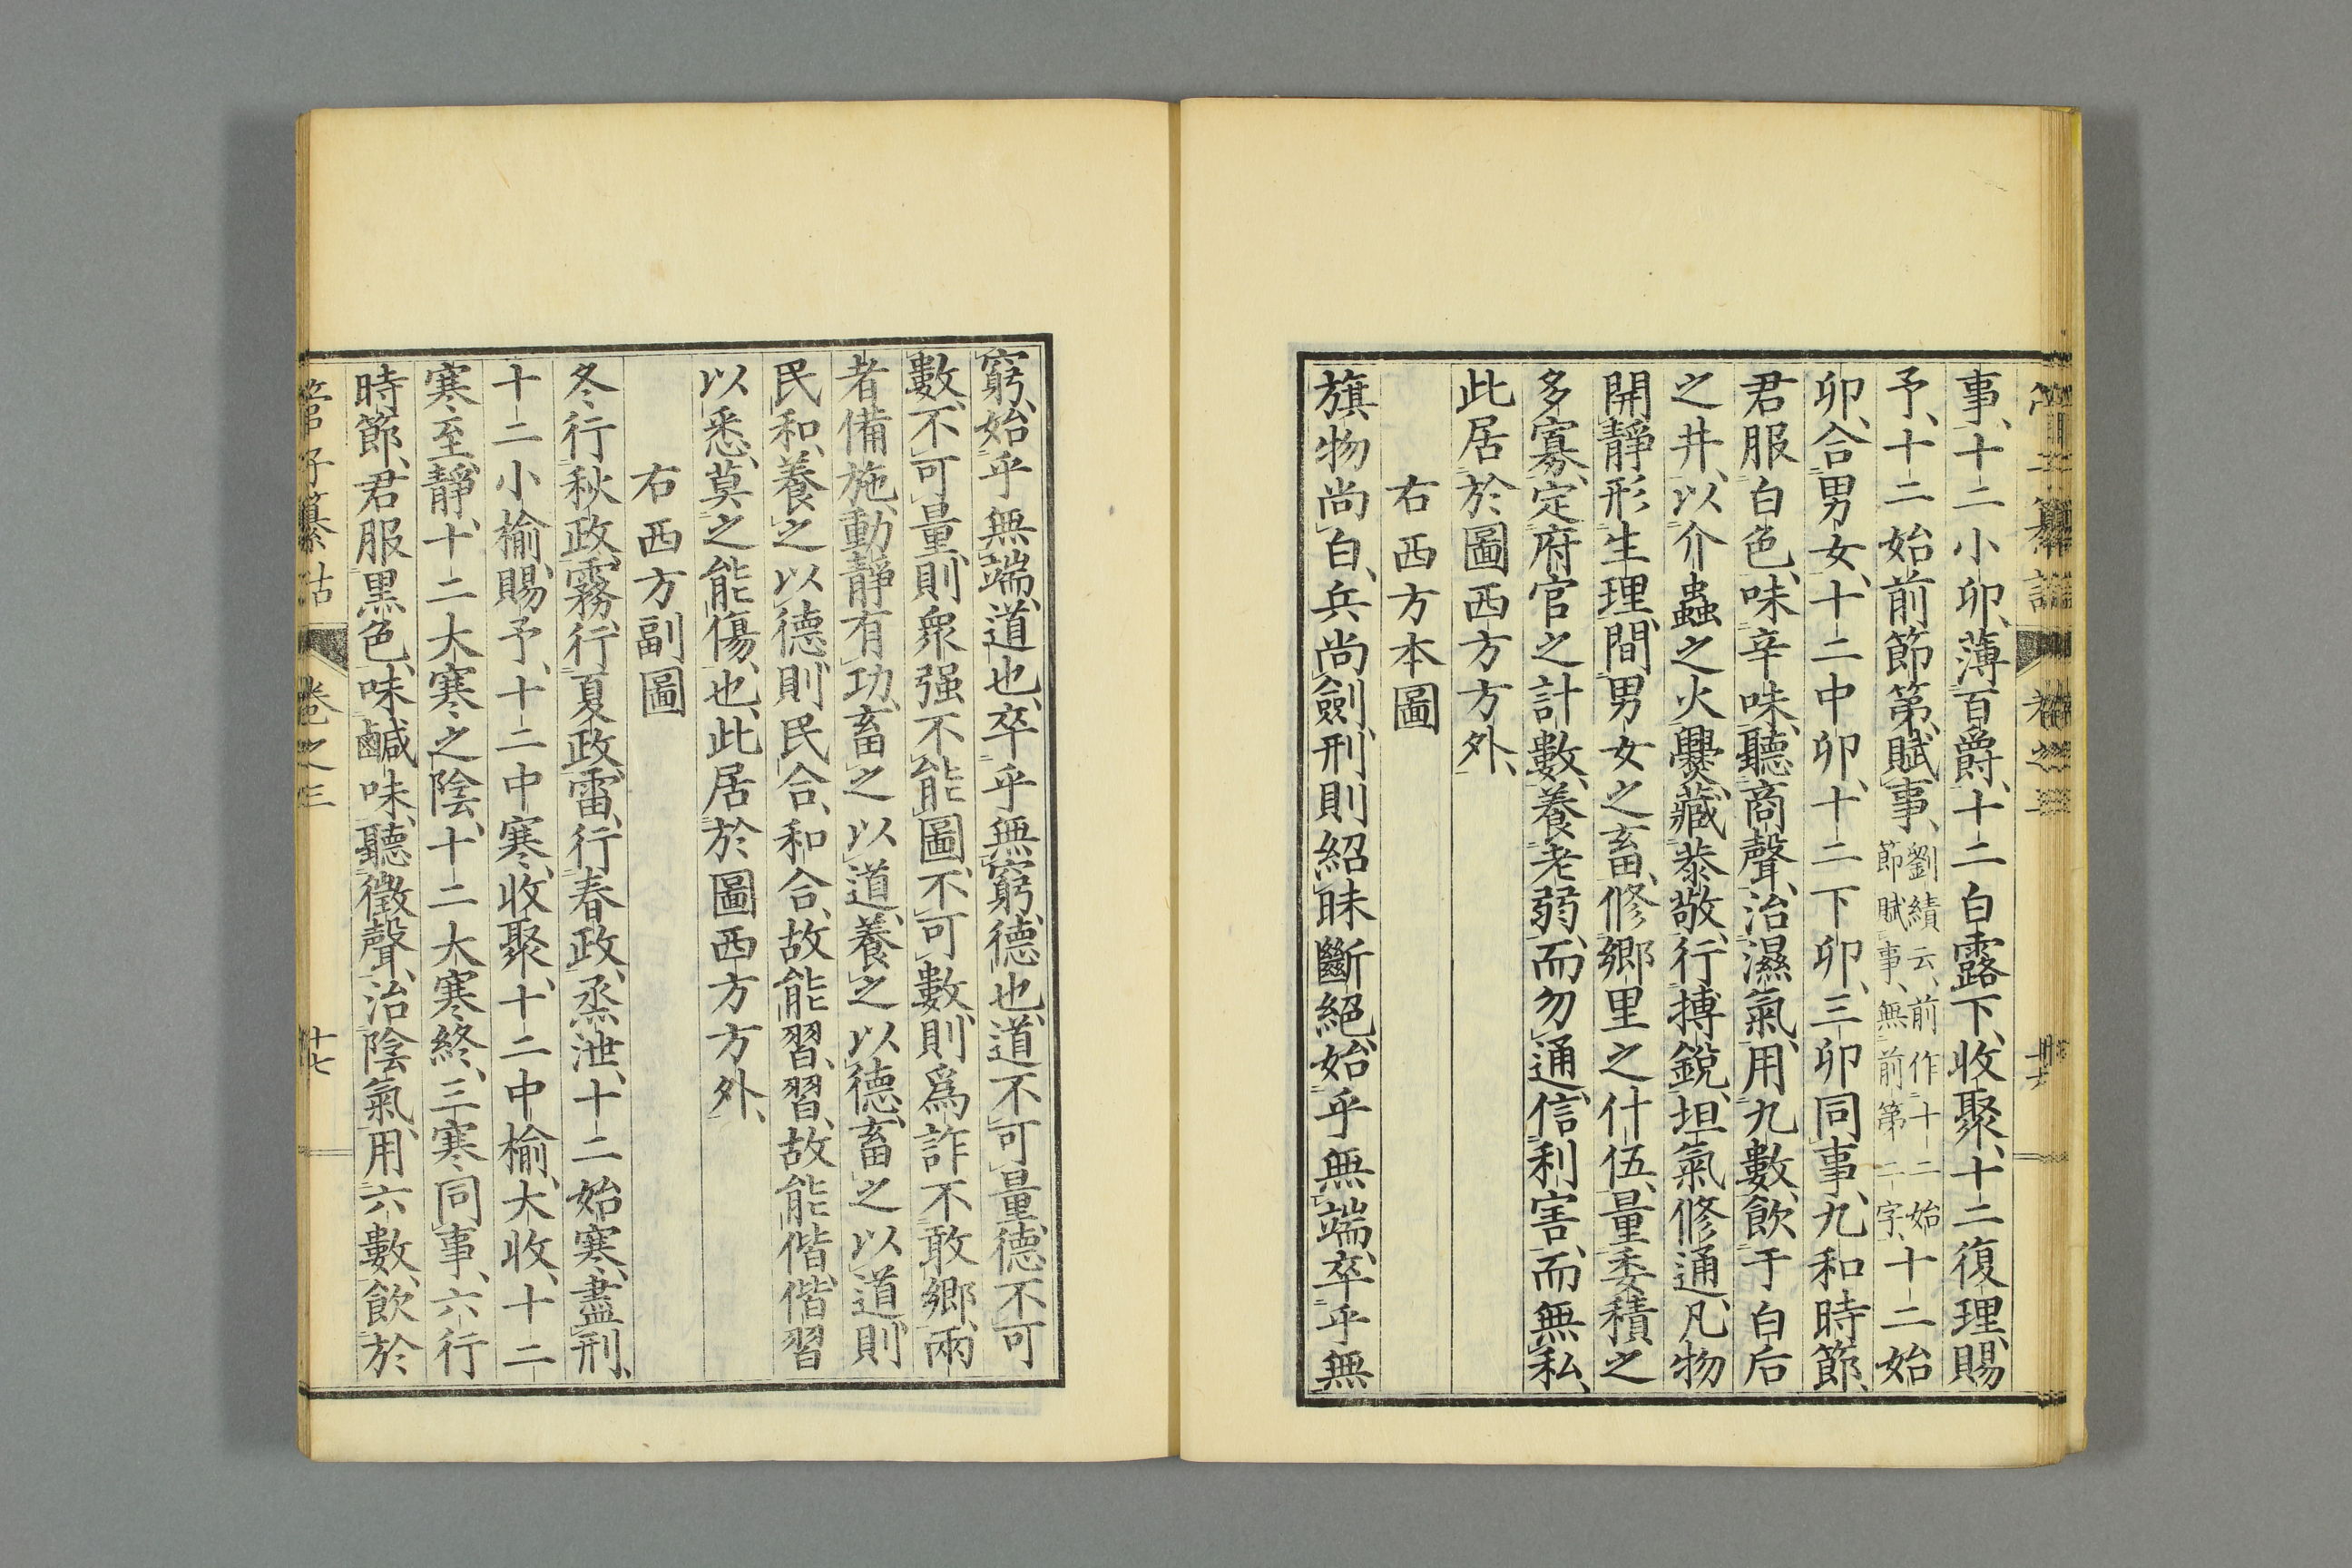 事、十二小卯、薄百爵、十二白露下、收聚、十二復理、賜
予、十二始前節第、賦事、劉績云、前作十二始節賦事、無前第二字、十二始
卯、合男女、十二中卯、十二下卯、三卯同事、九和時節、
君服白色、味辛味、聽商聲、治濕氣、用九數、飲于白后
之井、以介蟲之火爨、藏恭敬、行搏銳、坦氣修通、凡物
開靜形生理、間男女之畜、修鄉里之什伍、量委積之
多寡、定府官之計數、養老弱、而勿通、信利害、而無私、
此居於圖西方方外、
右西方本圖
旗物尚白、兵尚劍、刑則紹昧斷絕、始乎無端、卒乎無
窮、始乎無端、道也、卒乎無窮、德也、道不可量、德不可
數、不可量、則眾强不能圖、不可數、則爲詐不敢鄉、兩
者備施、動靜有功、畜之以道、養之以德、畜之以道、則
民和、養之以德則民合、和合、故能習、習、故能偕、偕習
以悉、莫之能傷也、此居於圖西方方外、
右西方副圖
冬行秋政、霧、行夏政、雷、行春政、烝泄、十二始寒、盡刑、
十二小榆、賜予、十二中寒、收聚、十二中榆、大收、十二
寒至靜、十二大寒之陰、十二大寒終、三寒同事、六行
時節、君服黒色、味鹹味、聽徵聲、治陰氣、用六數、飲於
卷之三
十七